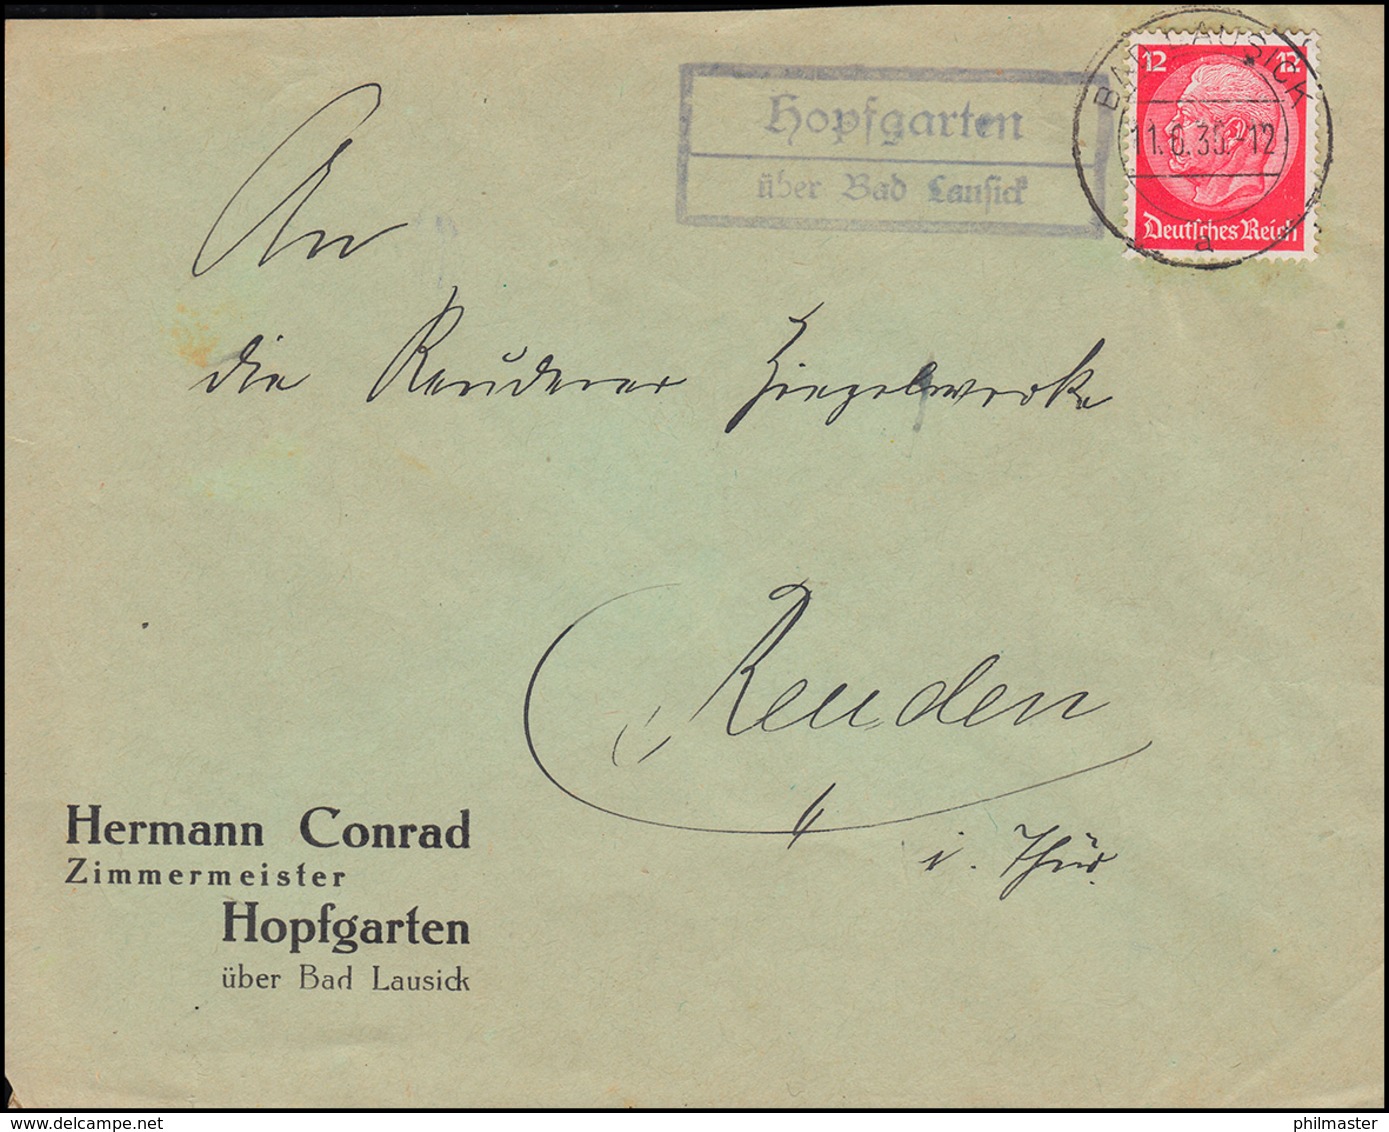 Hopfgarten
über Bad Lausick
BAD LAUSICK
12 12
11.6.35.-12
Deutsches Reich
a
An
die Reudener Ziegelwerke
Reuden
i. Thür.
Hermann Conrad
Zimmermeister
Hopfgarten
über Bad Lausick
philmaster